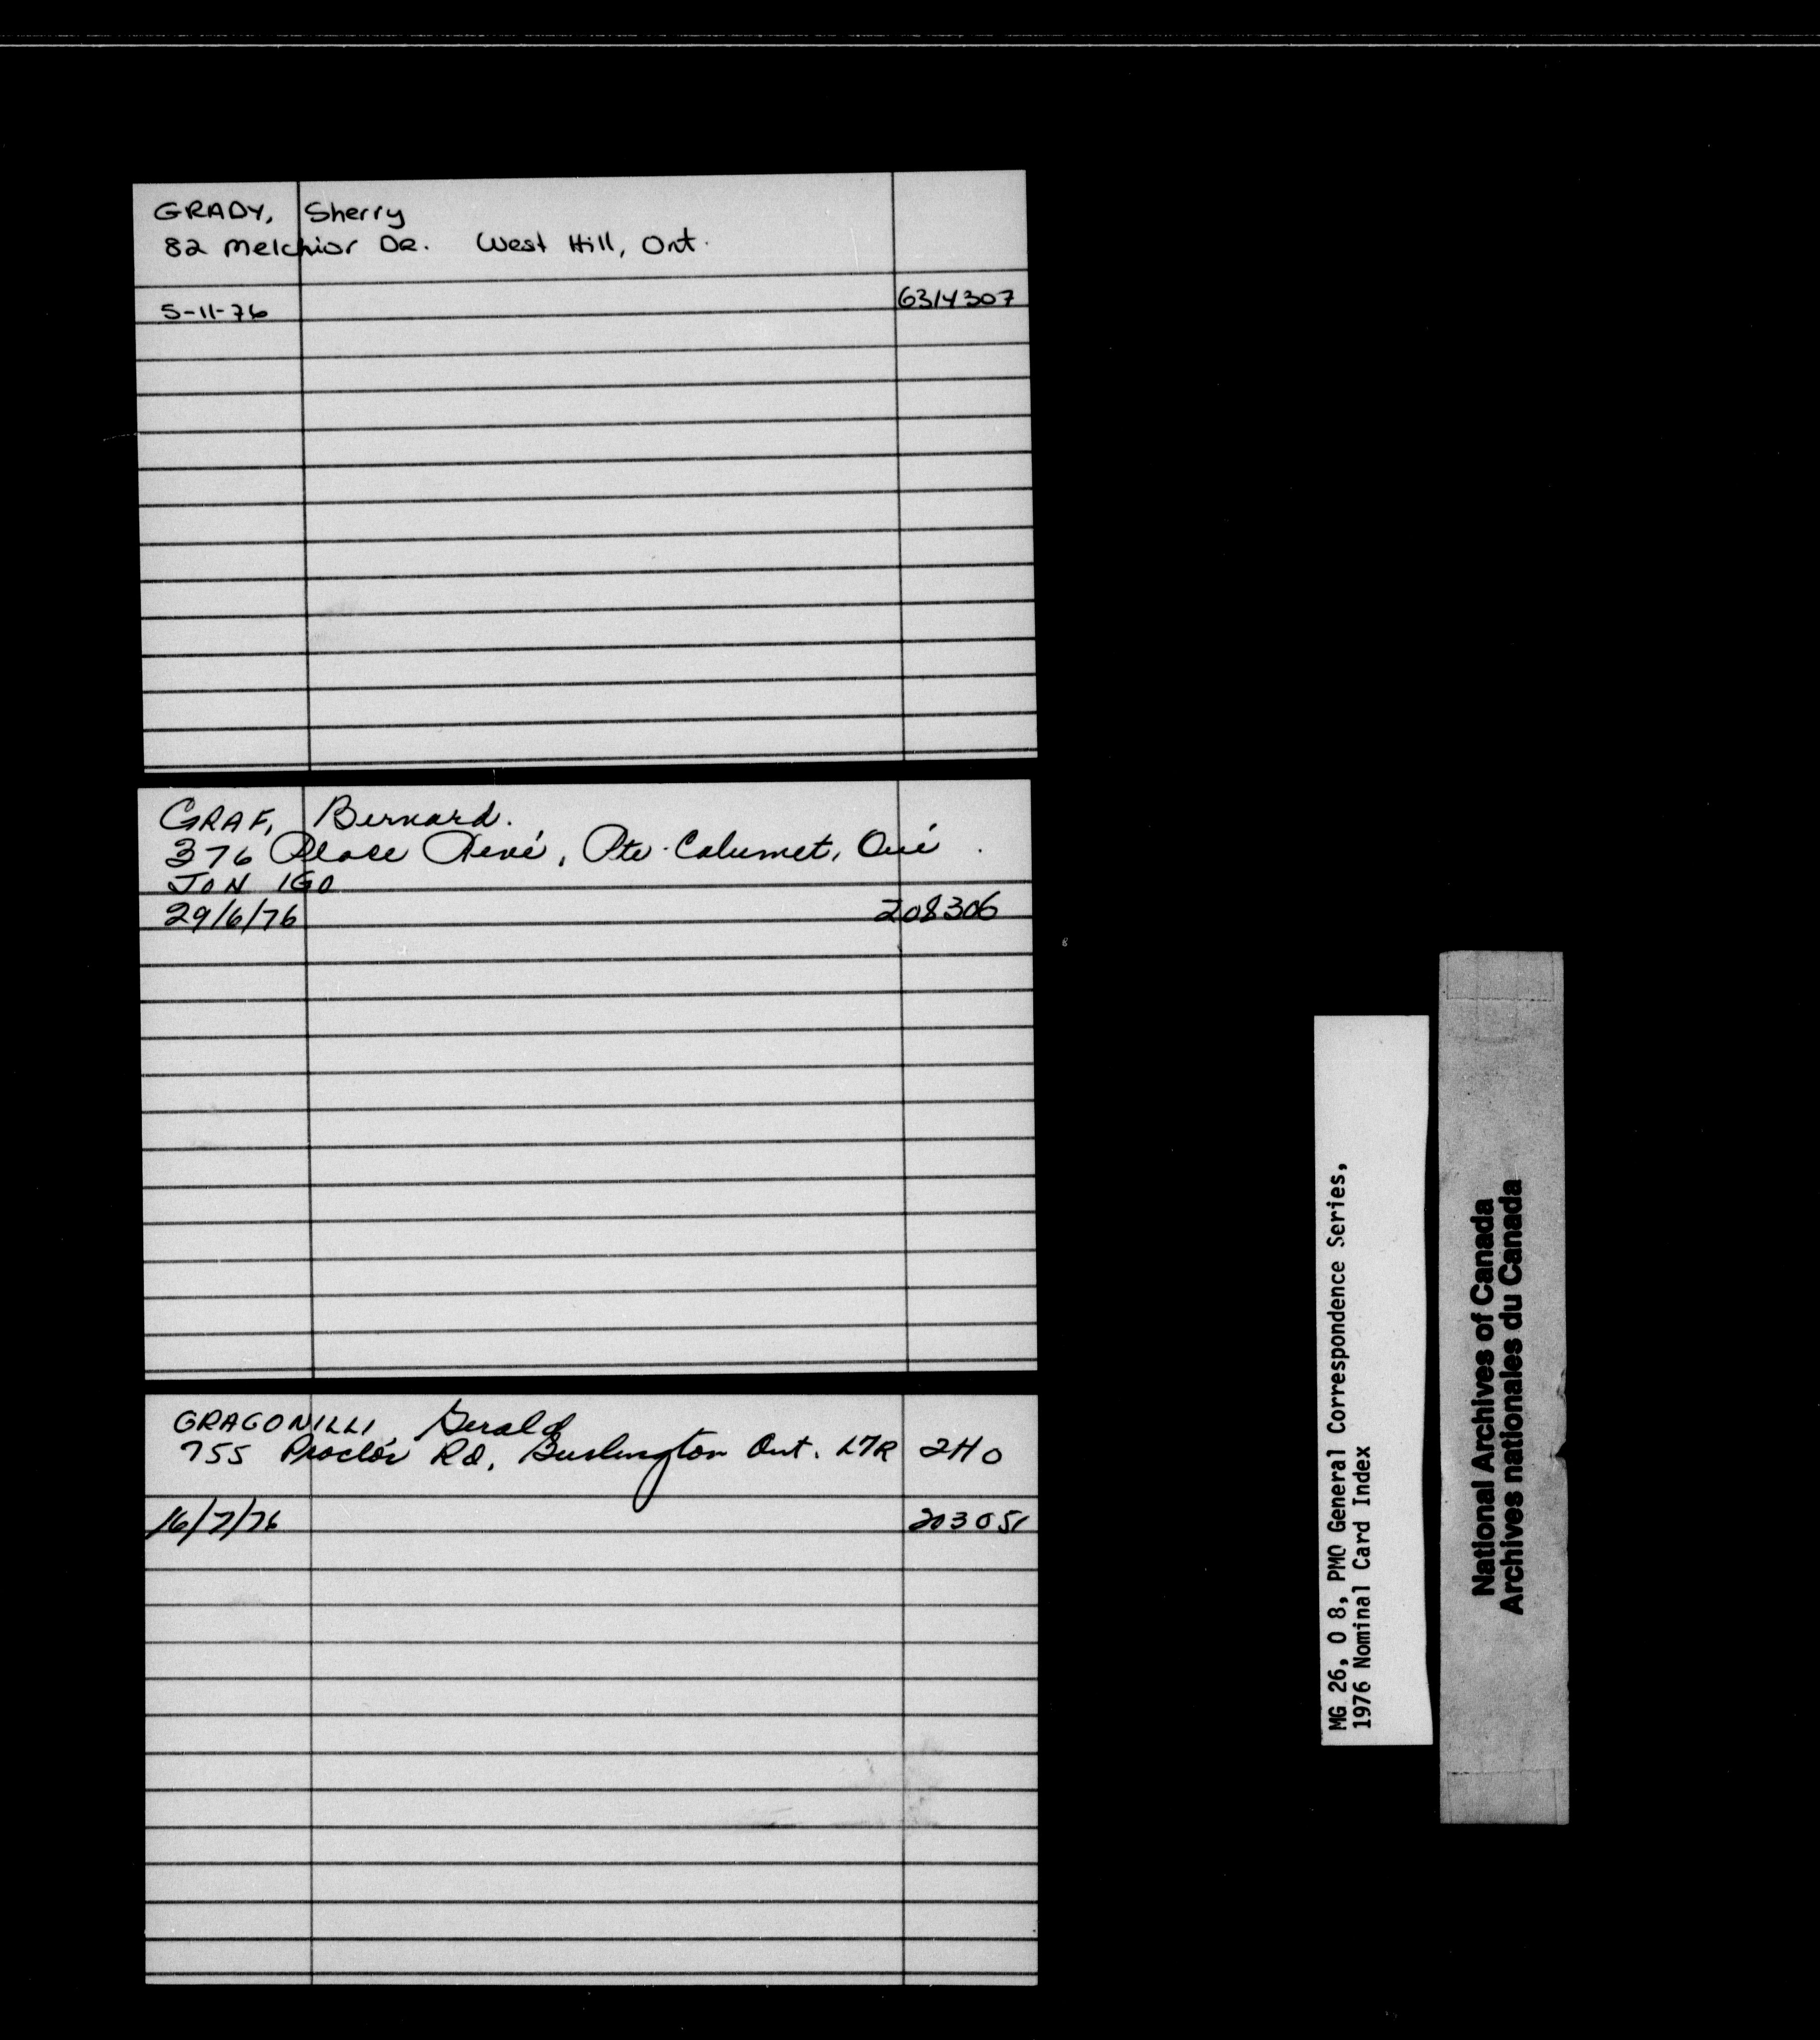 GRADY, Sherry
82 Melchior DR. West Hill, Ont.
5-11-76 6314307
GRAF, Bernard.
376 Place René, Pte-Calumet, Qué.
JON 1GO
29/6/76 208306
GRAGONILLI, Gerald
755 Proctor Rd, Burlington Ont. L7R 2HO
16/7/76 203051
MG 26, O 8, PMO General Correspondence Series,
1976 Nominal Card Index
National Archives of Canada
Archives nationales du Canada